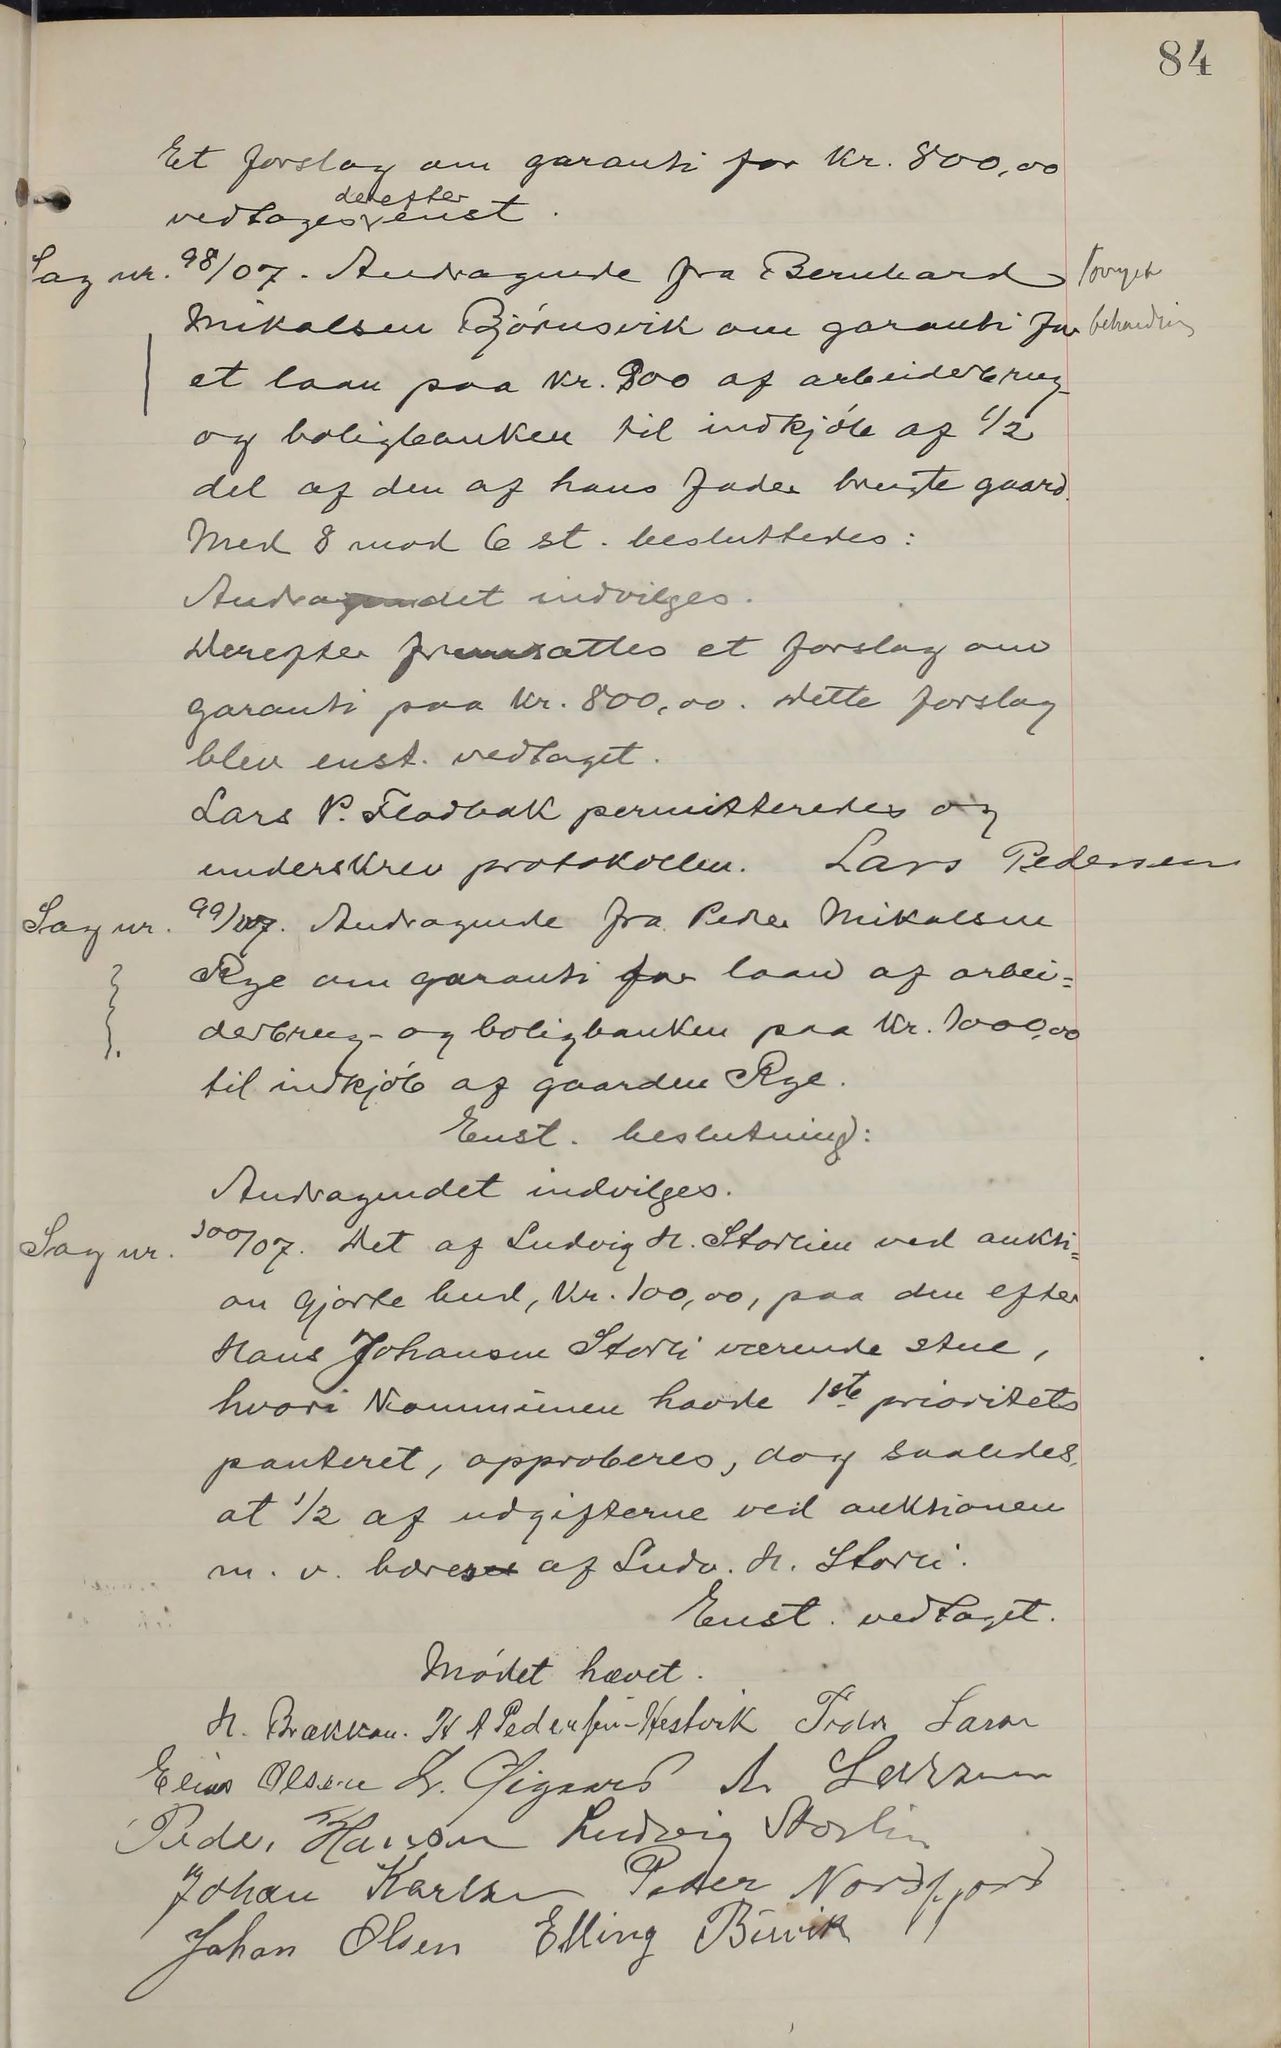 84
Et forslag om garanti for kr. 800,00
vedtages derefter enst.
Sag nr. 98/07. Andragende fra Bernhard
Mikalsen Bjørnsvik om garanti for
behandling
et laan paa kr. 900 af arbeiderbrug-
og boligbanken til indkjøb af 1/2
del af den af hans fader brugte gaard.
Med 8 mod 6 st. besluttedes:
Andragendet indvilges.
Derefter fremsattes et forslag om
garanti paa kr. 800,00. Dette forslag
blev enst. vedtaget.
Lars P. Fladbak permitteredes og
underskrev protokollen. Lars Pedersen
Sag nr. 99/07. Andragende fra Peder Mikalsen
Rye om garanti for laan af arbei=
derbrug- og boligbanken paa kr. 1000,00
til indkjøb af gaarden Rye.
Enst. beslutning:
Andragendet indvilges.
Sag nr. 100/07. Det af Ludvig H. Storlien ved aukti=
on gjorte bud, kr. 100,00, paa den efter
Hans Johansen Storli værende stue,
hvori Kommunen havde 1ste prioritets
panteret, approberes, dog saaledes,
at 1/2 af udgifterne ved auktionen
m. v. bæres af Ludv. H. Storli.
Enst. vedtaget.
Mødet hævet.
H. Brækkan. H A Pedersen-Hestvik Peder Larsen
Elias Olsen
Peder Hanson Ludvig Storlien
Johan Karlsen Peter Nordfjord
Johan Olsen Elling Burvik